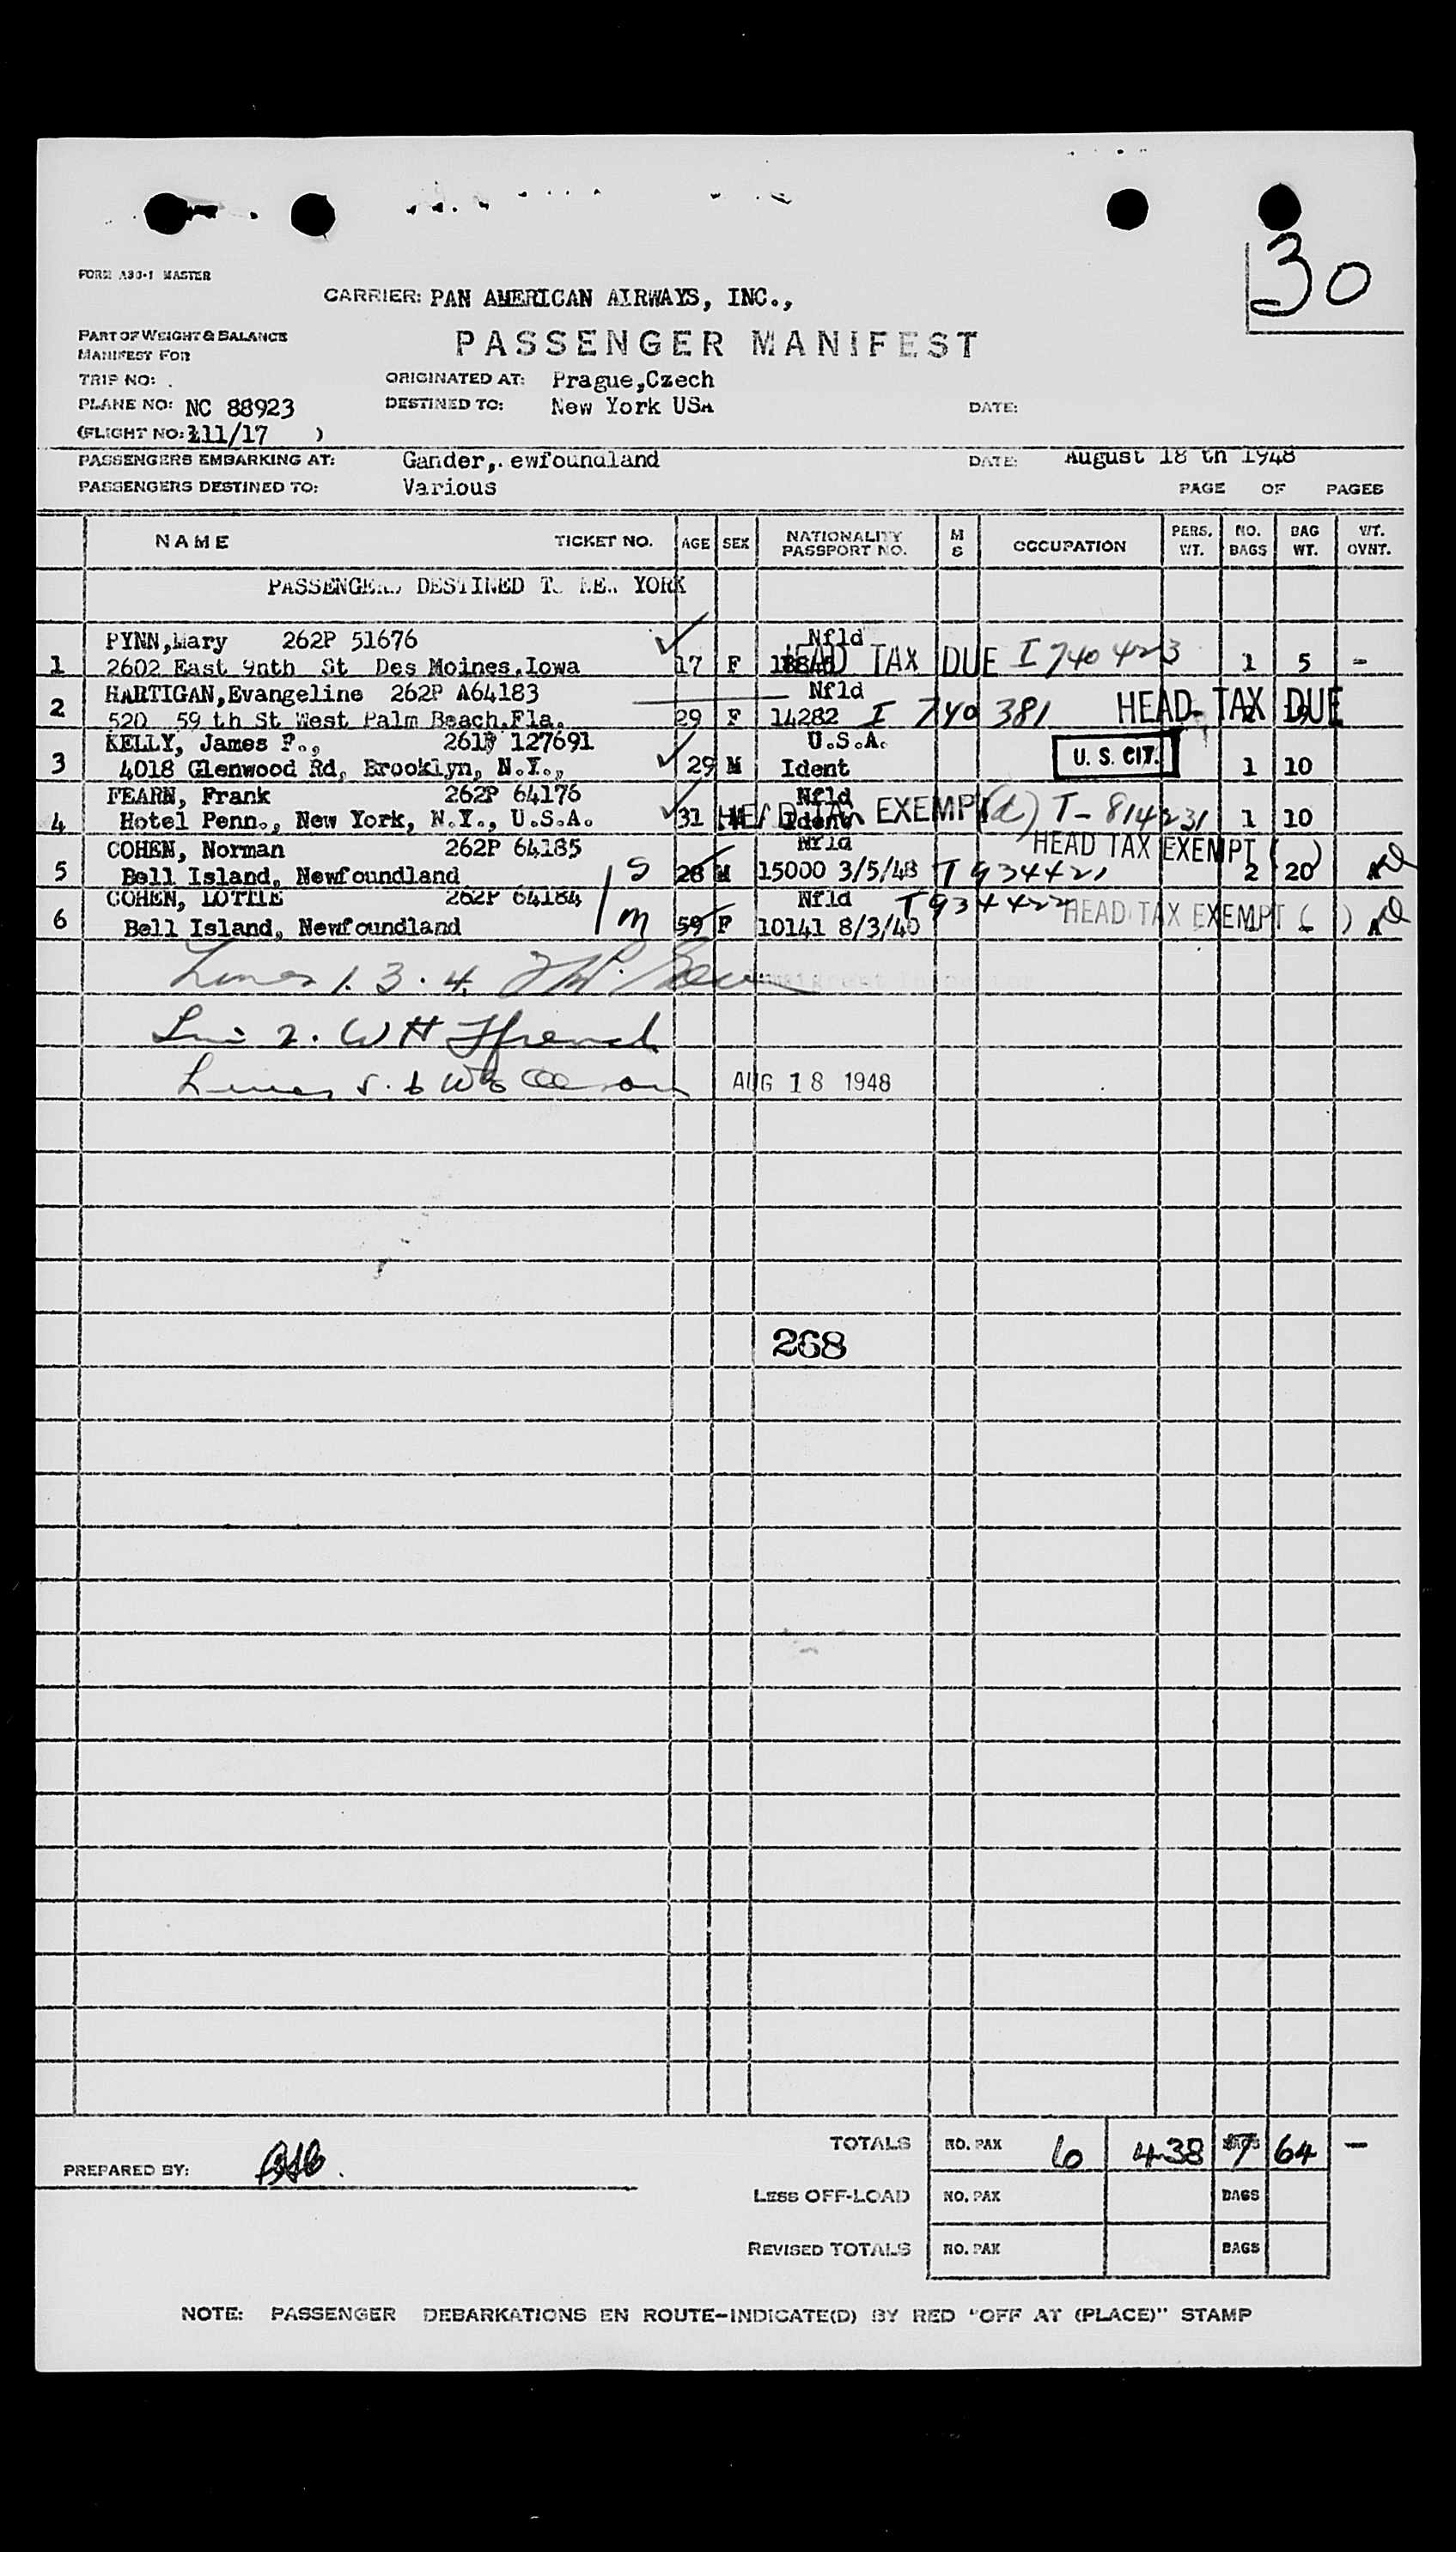 30
FORM A90-1 MASTER
CARRIER: PAN AMERICAN AIRWAYS, INC.,
PART OF WEIGHT & BALANCE
MANIFEST FOR
PASSENGER MANIFEST
TRIP NO: .
ORIGINATED AT: Prague,Czech
PLANE NO: NC 88923
DESTINED TO: New York USA
DATE:
(FLIGHT NO: 111/17 )
PASSENGERS EMBARKING AT: Gander,. ewfoundland
DATE: August 18 th 1948
PASSENGERS DESTINED TO: Various
PAGE OF PAGES
NAME TICKET NO. AGE SEX NATIONALITY PASSPORT NO. M S OCCUPATION PERS. WT. NO. BAGS BAG WT. WT. OVNT.
PASSENGERS DESTINED TO NEW YORK
PYNN,Mary 262P 51676 Nfld
1 2602 East 9nth St Des Moines,Iowa 17 F HEAD TAX DUE I 740 423 1 5 -
HARTIGAN,Evangeline 262P A64183 Nfld
2 520 59 th St West Palm Beach,Fla. 29 F 14282 I 740 381 HEAD TAX DUE
KELLY, James F., 261P 127691 U.S.A.
3 4018 Glenwood Rd, Brooklyn, N.Y., 29 M Ident U. S. CIT. 1 10
FEARN, Frank 262P 64176 Nfld
4 Hotel Penn., New York, N.Y., U.S.A. 31 M Ident HEAD TAX EXEMPT (d) T-814231 1 10
COHEN, Norman 262P 64185 Nfld HEAD TAX EXEMPT ( )
5 Bell Island, Newfoundland S 28 M 15000 3/5/48 T 934421 2 20
COHEN, LOTTIE 262P 64184 Nfld T934422 HEAD TAX EXEMPT ( )
6 Bell Island, Newfoundland M 59 F 10141 8/3/40
Lines 1. 3. 4.
Line 2. W H Ffrench
Lines 5. 6
AUG 18 1948
268
TOTALS NO. PAX 6 438 BAGS 7 64 -
PREPARED BY:
LESS OFF-LOAD NO. PAX BAGS
REVISED TOTALS NO. PAX BAGS
NOTE: PASSENGER DEBARKATIONS EN ROUTE-INDICATE(D) BY RED "OFF AT (PLACE)" STAMP